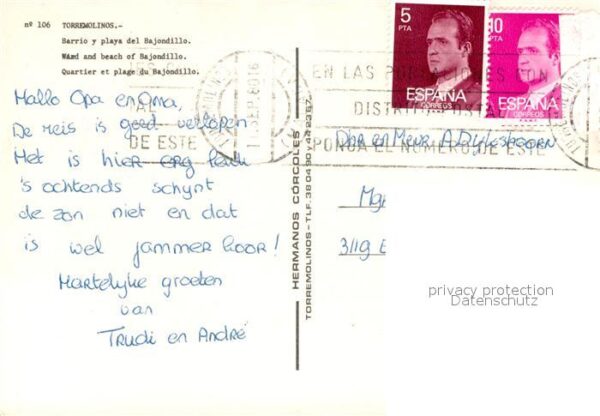 nº 106 TORREMOLINOS.-
Barrio y playa del Bajondillo.
Ward and beach of Bajondillo.
Quartier et plage du Bajondillo.
Hallo Opa en Oma,
De reis is goed verlopen
Het is hier erg leuk
's ochtends schijnt
de zon niet en dat
is wel jammer hoor!
Hartelijke groeten
van
Trudi en André
HERMANOS CÓRCOLES.-
TORREMOLINOS-TLF.
5
PTA
ESPAÑA
CORREOS
10
PTA
ESPAÑA
CORREOS
EN LAS POBLACIONES CON
DISTRITO POSTAL
PONGA EL NUMERO DE ESTE
AL
DE ESTE
SEP.
Dhr en Mevr. A.
3119
privacy protection
Datenschutz